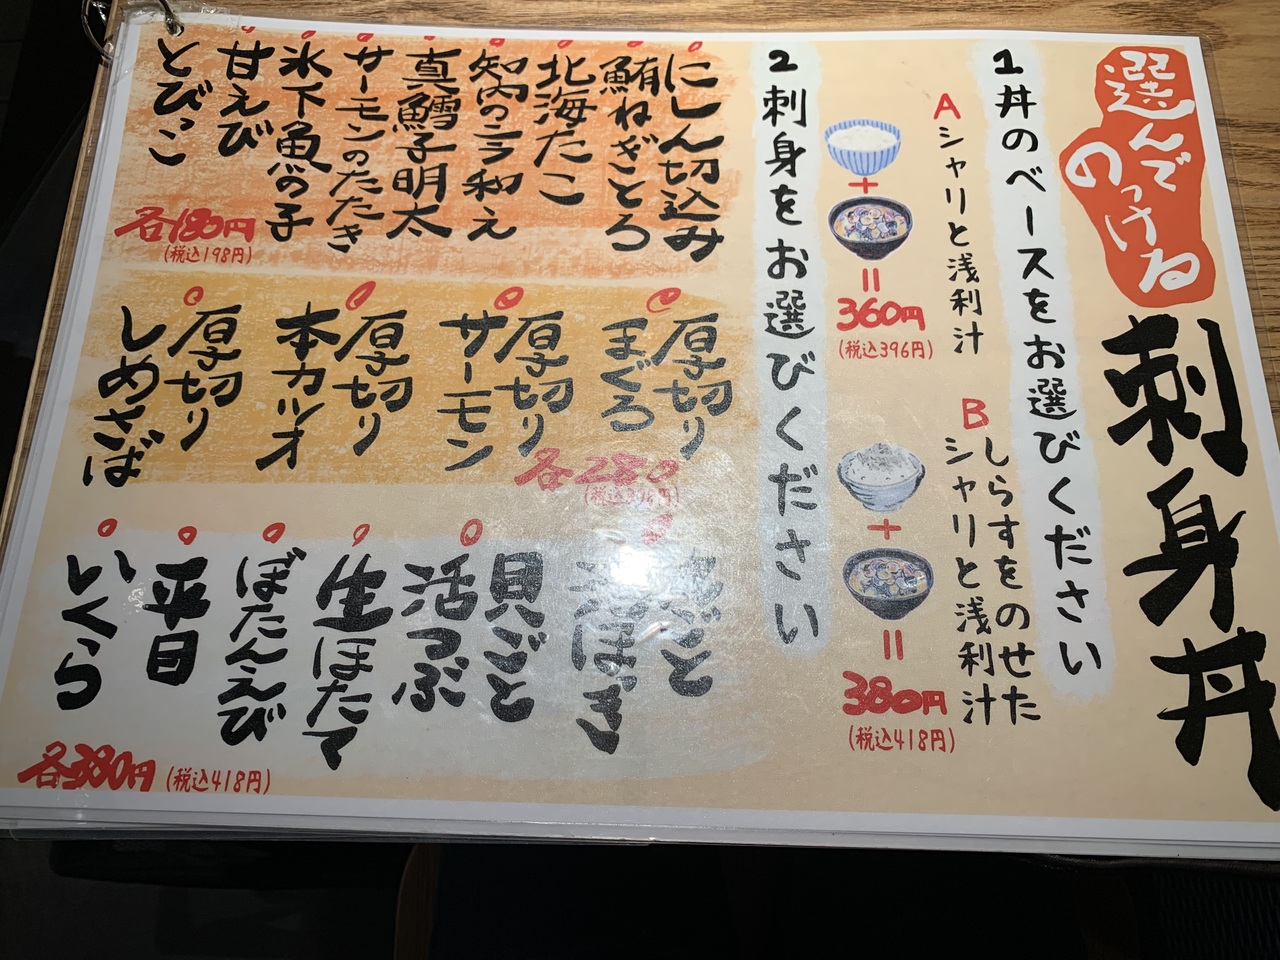 選んで
のっける
刺身丼
1 丼のベースをお選びください
A
シャリと浅利汁
360円
(税込396円)
B
しらすをのせた
シャリと浅利汁
380円
(税込418円)
2 刺身をお選びください
にしん切込み
鮪ねぎとろ
北海たこ
知内のニラ和え
真鱈子明太
サーモンのたたき
氷下魚の子
甘えび
とびっこ
各180円
(税込198円)
厚切り
まぐろ
厚切り
サーモン
厚切り
本カツオ
厚切り
しめさば
各280
貝ごと
貝ごと
活つぶ
生ほたて
ぼたんえび
平目
いくら
各380円
(税込418円)